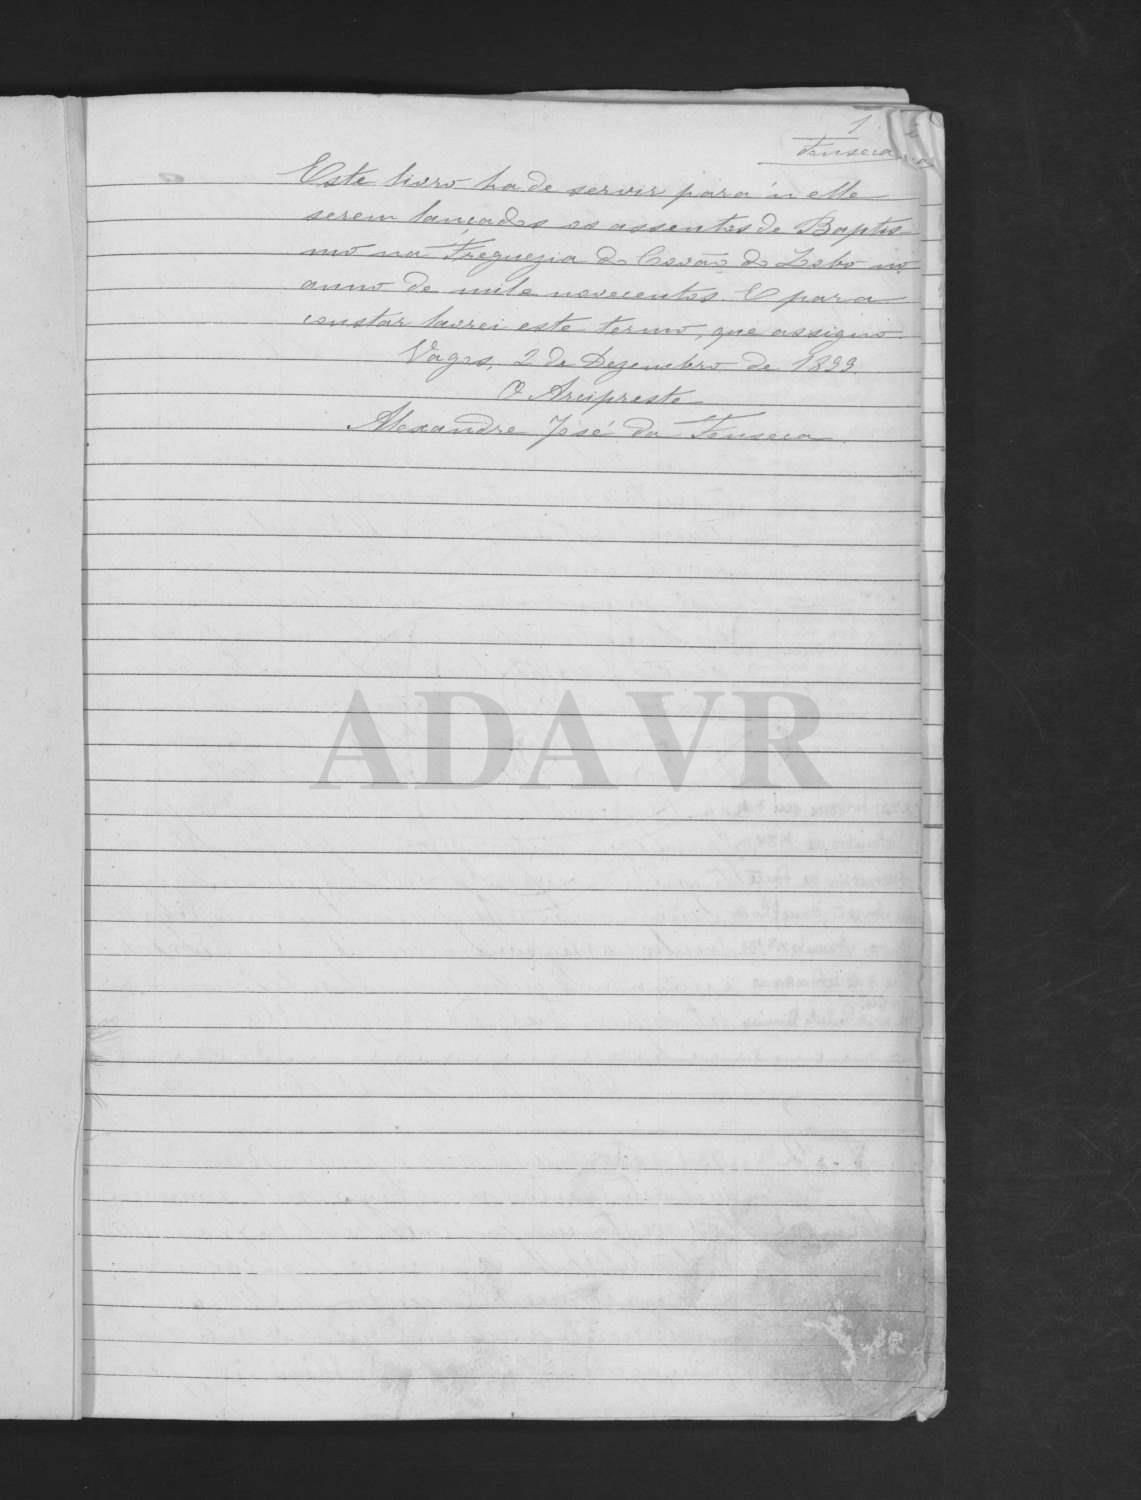 1
Fonseca
Este livro ha de servir para n'elle
serem lançados os assentos de Baptis-
mo na Freguezia do Covão do Lobo no
anno de mil e novecentos. E para
constar lavrei este termo, que assigno.
Vagos, 2 de Dezembro de 1899.
O Arcipreste
Alexandre José da Fonseca
ADAVR